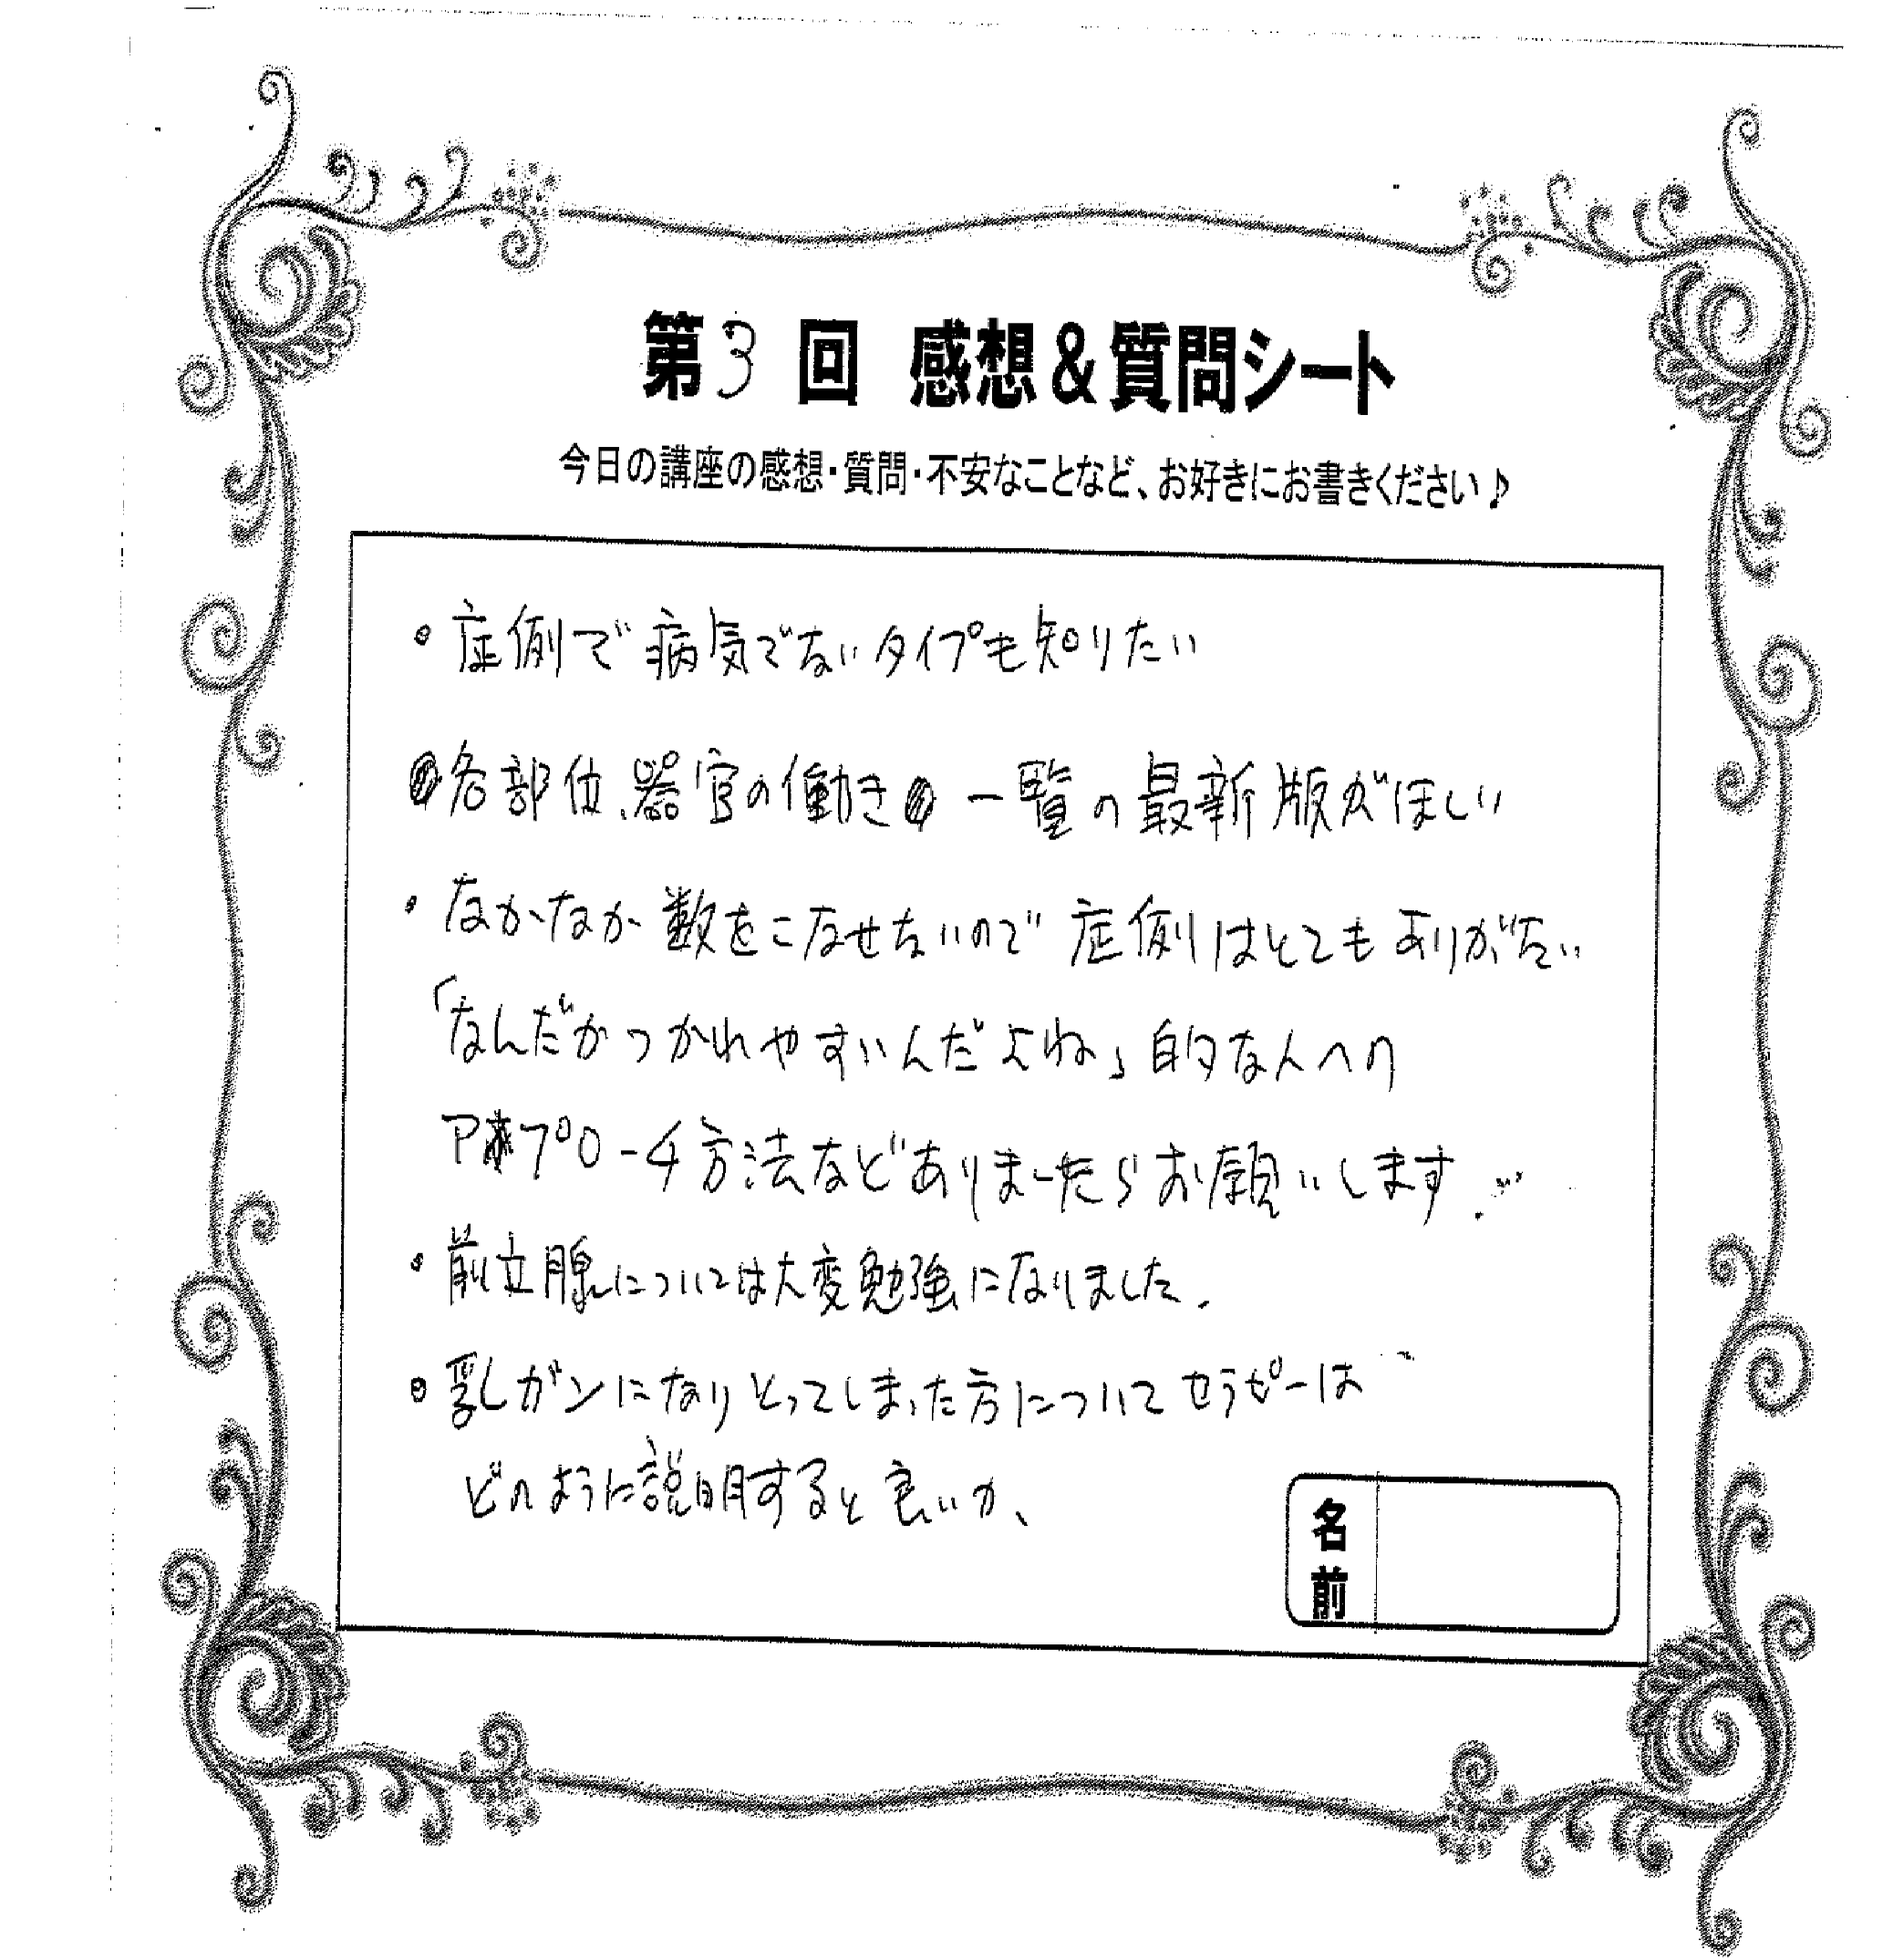 第3回 感想&質問シート
今日の講座の感想・質問・不安なことなど、お好きにお書きください♪
・症例で病気でないタイプも知りたい
・各部位、器官の働き 一覧の最新版がほしい
・なかなか数をこなせないので症例はとてもありがたい
「なんだかつかれやすいんだよね」的な人への
アプローチ方法などありましたらお願いします
・前立腺については大変勉強になりました。
・乳ガンになりとってしまった方についてセラピーは
どのように説明すると良いか、
名前